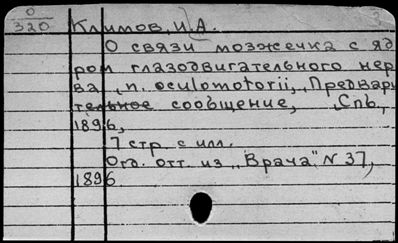 0
320
Климов, И А.
О связи мозжечка с яд
ром глазодвигательного нер
ва, n. oculomotorii, „Предвари
тельное сообщение, Спб,
1896,
7 стр. с илл.
Отд. отт. из „Врача" N 37,
1896.